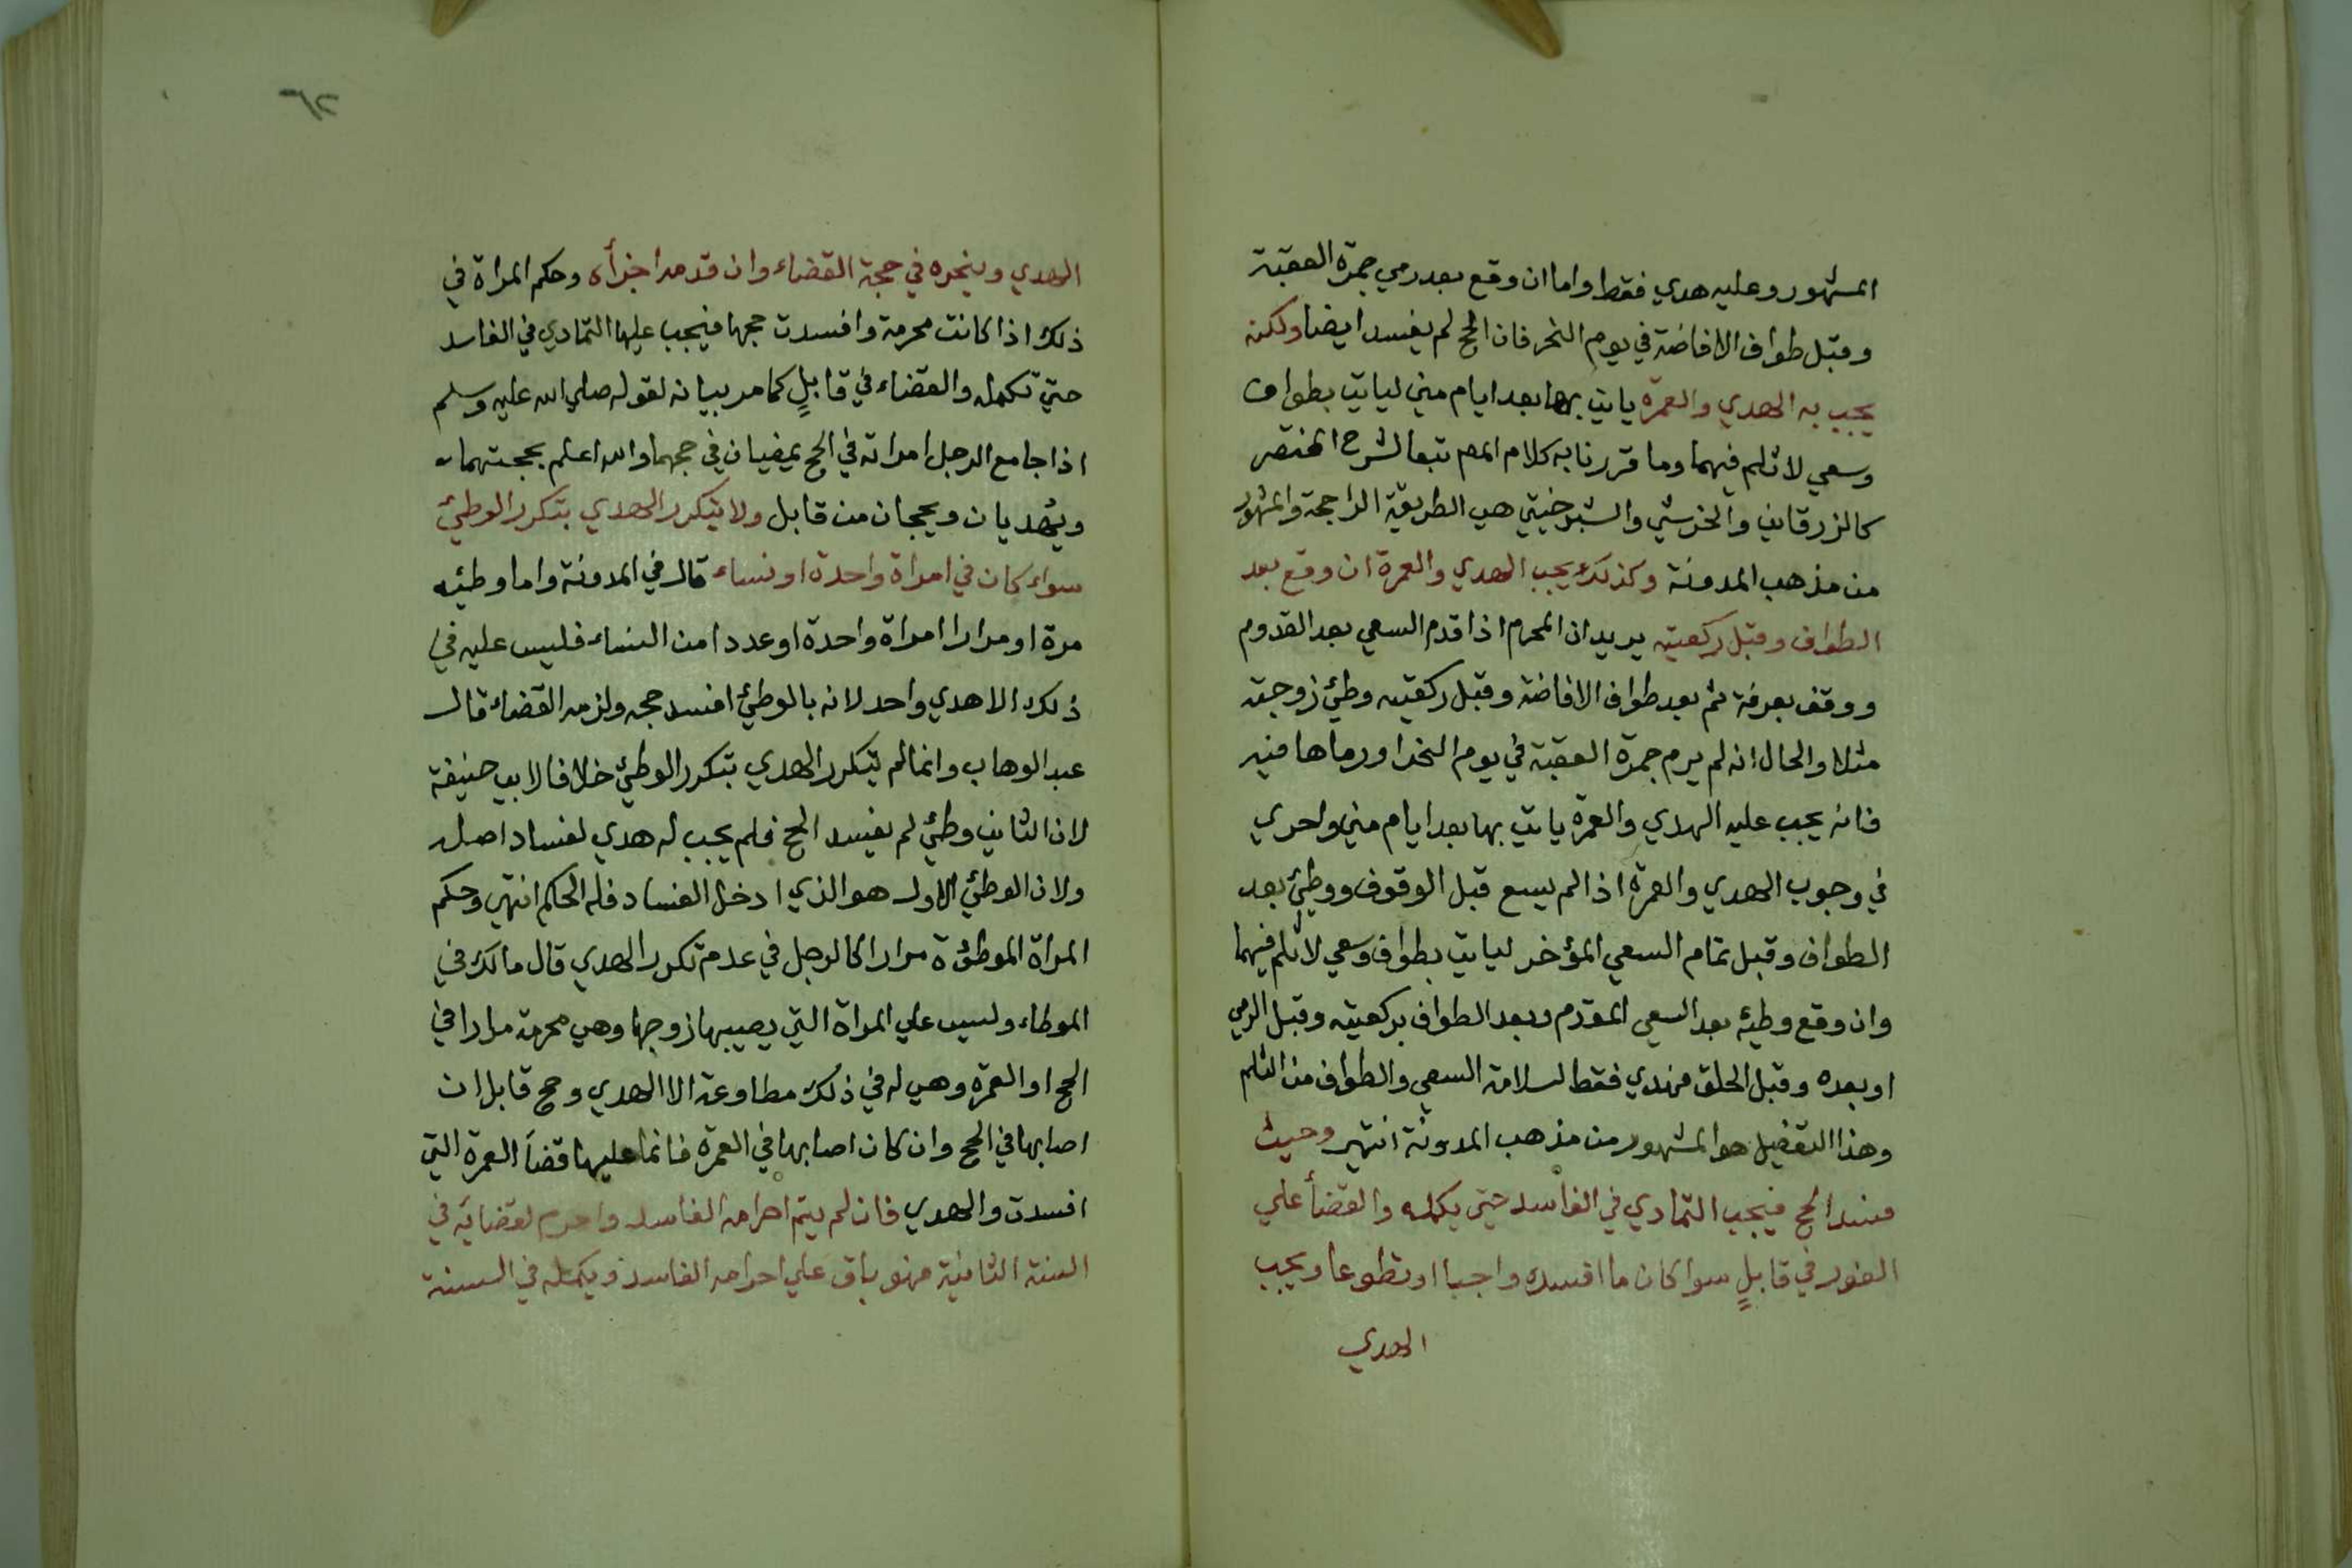 المشهور وعليه هدي فقط واما ان وقع بعد رمي جمرة العقبة
وقبل طواف الافاضة في يوم النحر فان الحج لم يفسد ايضا ولكنه
يجب به الهدي والعمرة ياتي بها بعد ايام مني لياتي بطواف
وسعي لا ثلم فيهما وما قررنا به كلام المص تبعا لشرح المختصر
كالزرقاني والخرشي والشبرخيتي هي الطريقة الراجحة والمشهور
من مذهب المدونة وكذلك يجب الهدي والعمرة ان وقع بعد
الطواف وقبل ركعتيه يريد ان المحرم اذا قدم السعي بعد القدوم
ووقف بعرفة ثم بعد طواف الافاضة وقبل ركعتيه وطئ زوجته
مثلا والحال انه لم يرم جمرة العقبة في يوم النحر او رماها فيه
فانه يجب عليه الهدي والعمرة ياتي بها بعد ايام مني واحري
في وجوب الهدي والعمرة اذا لم يسع قبل الوقوف ووطئ بعد
الطواف وقبل تمام السعي المؤخر لياتي بطواف وسعي لا ثلم فيهما
وان وقع وطيئه بعد السعي المقدم وبعد الطواف بركعتيه وقبل الرمي
او بعده وقبل الحلق فهدي فقط لسلامة السعي والطواف من الثلم
وهذا التفصيل هو المشهور من مذهب المدونة انتهي وحيث
فسد الحج فيجب التمادي في الفاسد حتي يكمله والقضأ علي
الفور في قابلٍ سوا كان ما افسده واجبا او تطوعا ويجب
الهدي
٦٢
الهدي وينحره في حجة القضاء وان قدمه اجزأه وحكم المراة في
ذلك اذا كانت محرمة وافسدت حجها فيجب عليها التمادي في الفاسد
حتي تكمله والقضاء في قابلٍ كما مر بيانه لقوله صلي الله عليه وسلم
اذا جامع الرجل امراته في الحج يمضيان في حجهما والله اعلم بحجتهما
ويُهديان ويحجان من قابل ولا يتكرر الهدي بتكرر الوطئ
سواء كان في امراة واحدة او نساء قال في المدونة واما وطيئه
مرة او مرارا امراة واحدة او عددا من النساء فليس عليه في
ذلك الا هدي واحد لانه بالوطئ افسد حجه ولزمه القضاء قال
عبد الوهاب وانما لم يتكرر الهدي بتكرر الوطئ خلافا لابي حنيفة
لان الثاني وطئ لم يفسد الحج فلم يجب له هدي لفساد اصله
ولان الوطئ الاول هو الذي ادخل الفساد فله الحكم انتهي وحكم
المراة الموطؤة مرارا كالرجل في عدم تكرر الهدي قال مالك في
الموطاء وليس علي المراة التي يصيبها زوجها وهي محرمة مرارا في
الحج او العمرة وهي له في ذلك مطاوعة الا الهدي وحج قابل ان
اصابها في الحج وان كان اصابها في العمرة فانما عليها قضاَ العمرة التي
افسدت والهدي فان لم يتم احرامه الفاسد واحرم لقضايه في
السنة الثانية فهو باق علي احرامه الفاسد ويكمله في السنة